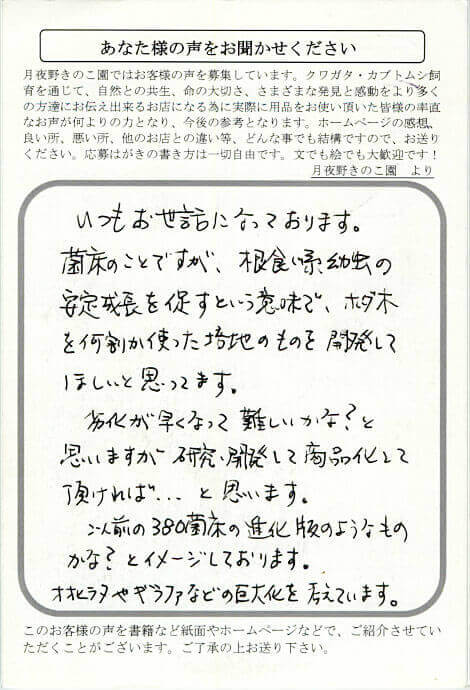 あなた様の声をお聞かせください
月夜野きのこ園ではお客様の声を募集しています。クワガタ・カブトムシ飼
育を通じて、自然との共生、命の大切さ、さまざまな発見と感動をより多く
の方達にお伝え出来るお店になる為に実際に用品をお使い頂いた皆様の率直
なお声が何よりの力となり、今後の参考となります。ホームページの感想、
良い所、悪い所、他のお店との違い等、どんな事でも結構ですので、お送り
ください。応募はがきの書き方は一切自由です。文でも絵でも大歓迎です！
月夜野きのこ園　より
いつもお世話になっております。
菌床のことですが、根食い系幼虫の
安定成長を促すという意味で、ホダ木
を何割か使った培地のものを開発して
ほしいと思ってます。
劣化が早くなって難しいかな？と
思いますが研究・開発して商品化して
頂ければ...と思います。
二人前の380菌床の進化版のようなもの
かな？とイメージしております。
オオヒラタやギラファなどの巨大化を考えています。
このお客様の声を書籍など紙面やホームページなどで、ご紹介させてい
ただくことがございます。ご了承の上お送り下さい。